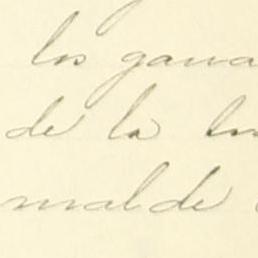 los gana
de la
mal de